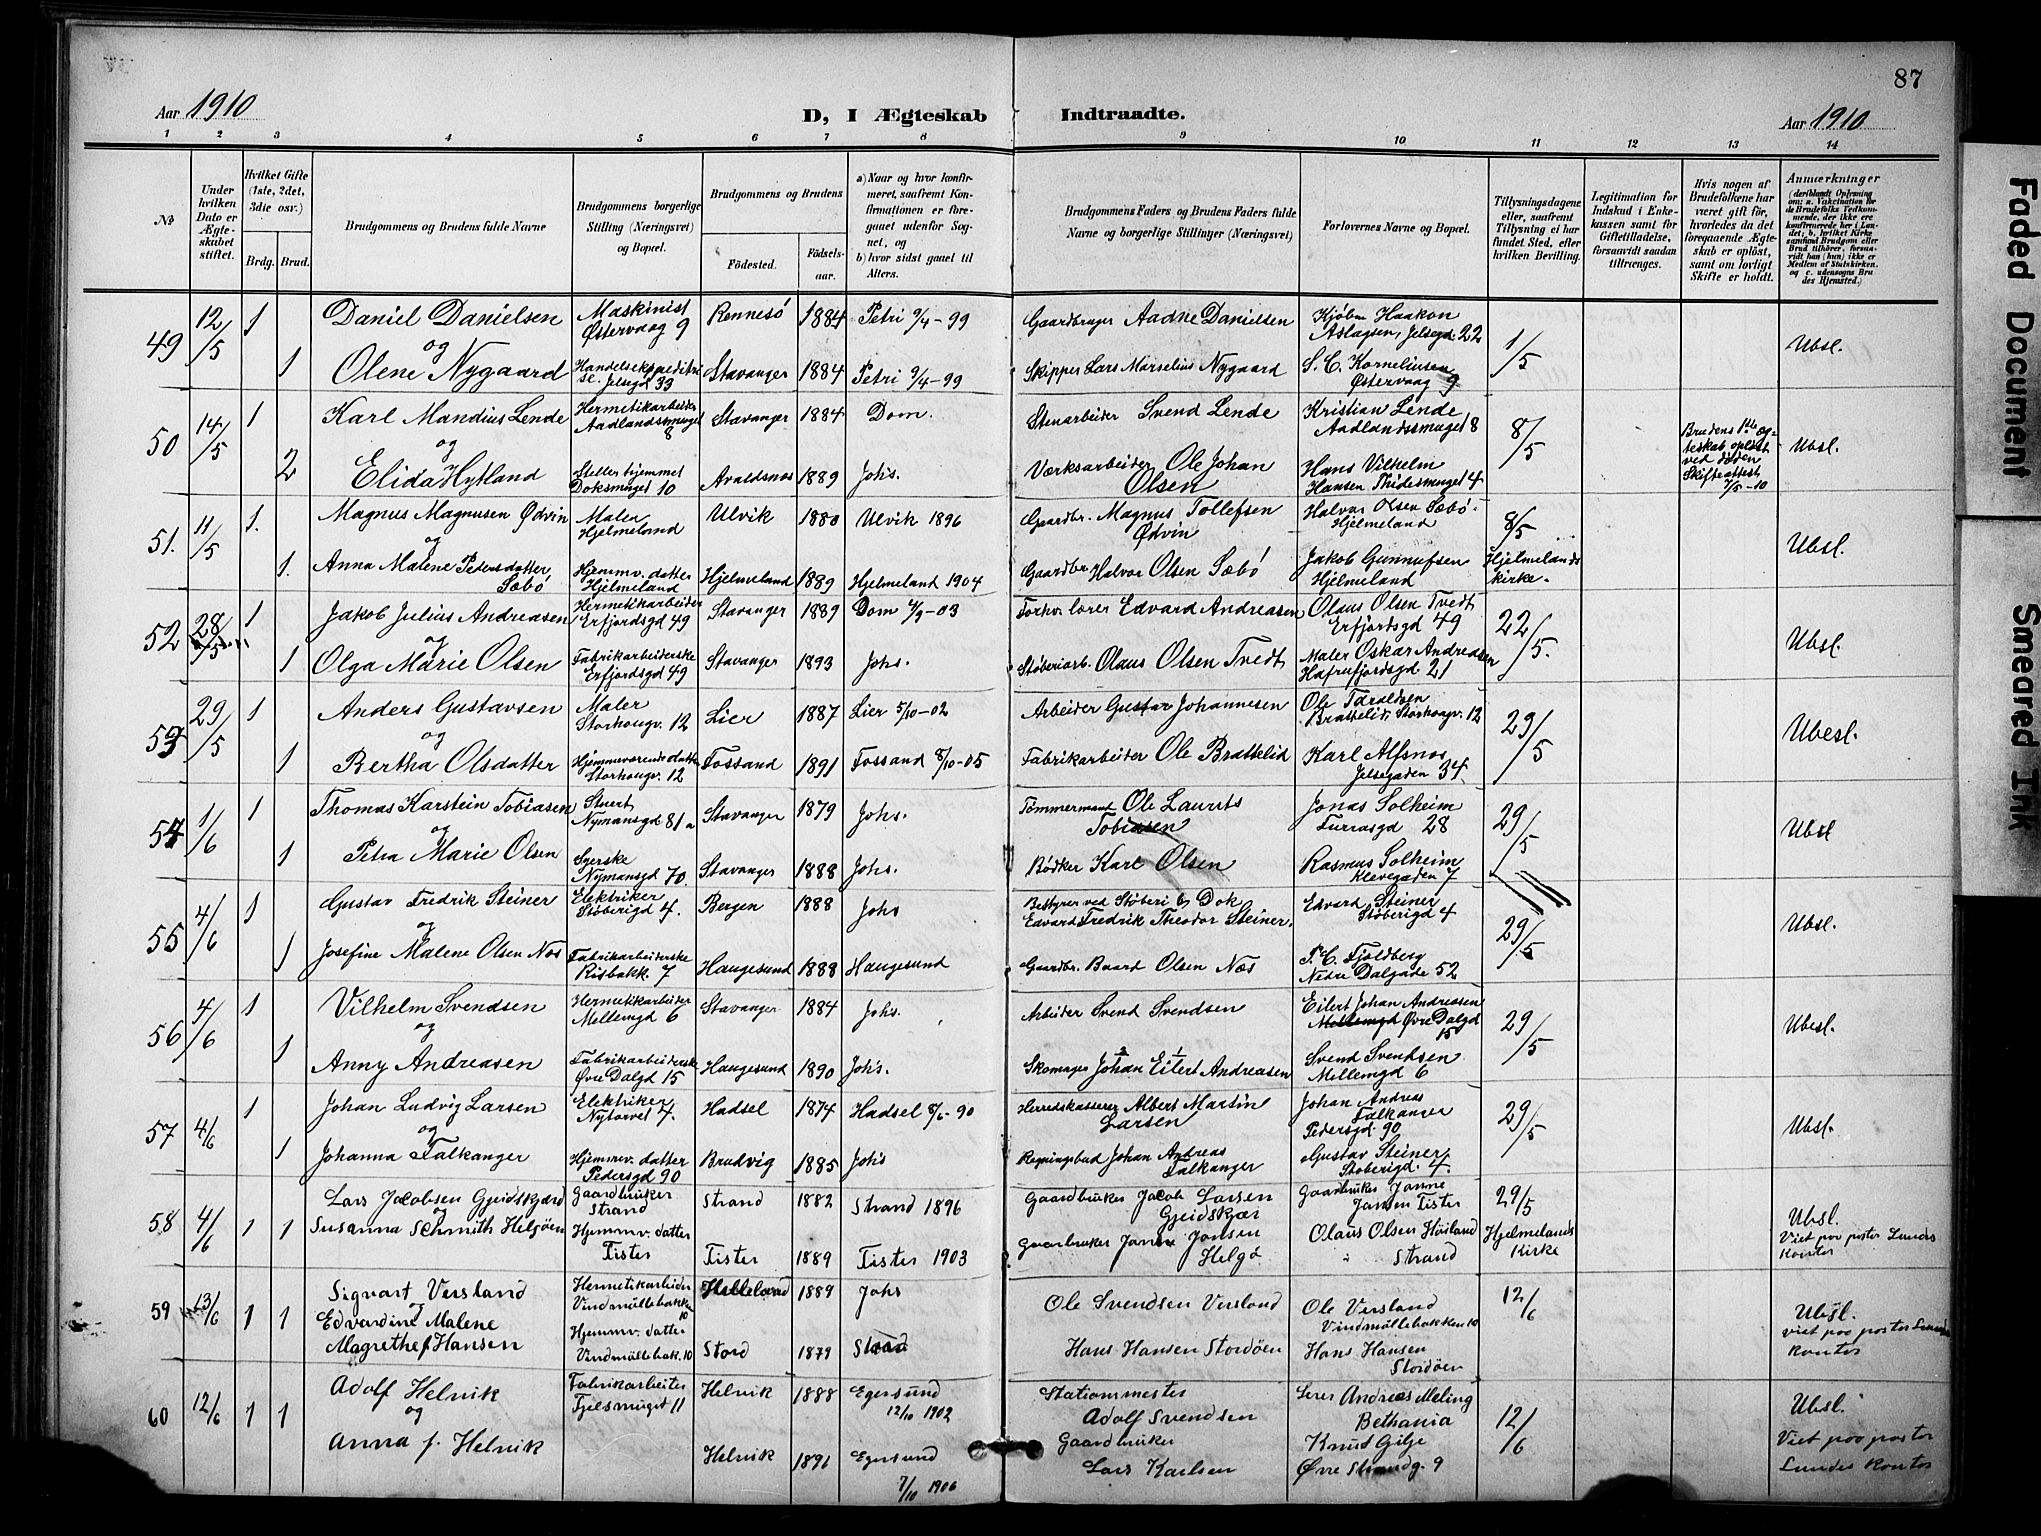 87
Aar 1910
D, I Ægteskab Indtraadte.
Aar 1910
1 2 3 4 5 6 7 8 9 10 11 12 13 14
No
Under hvilken Dato er Ægteskabet stiftet.
Hvilket Gifte (1ste, 2det, 3die osv.)
Brdg. Brud.
Brudgommens og Brudens fulde Navne
Brudgommens borgerlige Stilling (Næringsvei) og Bopæl.
Brudgommens og Brudens
Fødested. Fødselsaar.
a) Naar og hvor konfirmeret, saafremt Konfirmationen er foregaaet udenfor Sognet, og
b) hvor sidst gaaet til Alters.
Brudgommens Faders og Brudens Faders fulde Navne og borgerlige Stillinger (Næringsvei)
Forlovernes Navne og Bopæl.
Tillysningsdagene eller, saafremt Tillysning ei har fundet Sted, efter hvilken Bevilling.
Legitimation for Indskud i Enkekassen samt for Giftetilladelse, forsaavidt saadan tiltrænges.
Hvis nogen af Brudefolkene har været gift før, hvorledes da det foregaaende Ægteskab er opløst, samt om lovligt Skifte er holdt.
Anmærkninger
49 12/5 1 Daniel Danielsen Maskinist Østervaag 9 Rennesö 1884 Petri 9/4-99 Gaardbruger Aadne Danielsen Kjøbm Haakon Aslagsen, Jelsegd 22 1/5 Ubsl.
og
1 Olene Nygaard Jelsegd 33 Stavanger 1884 Petri 9/4-99 Skipper Lars Marselius Nygaard S. C. Korneliusen Østervaag 9
50 14/5 1 Karl Mandius Lende Hermetikarbeider Aadlandssmuget 8 Stavanger 1884 Dom. Stenarbeider Svend Lende Kristian Lende Aadlandssmuget 8 8/5 Brudens 1ste ægteskab opløst ved døden Skifteattest 7/5-10 Ubsl.
og
2 Elida Hytland Steller hjemmet Doksmuget 10 Avaldsnes 1889 Johs. Værksarbeider Ole Johan Olsen Hans Vilhelm Hansen Thidesmuget 4
51. 11/5 1. Magnus Magnusen Ødvin Maler Hjelmeland Ulvik 1880 Ulvik 1896 Gaardbr. Magnus Tollefsen Ødvin Halvor Olsen Sæbö. Hjelmeland 8/5 Hjelmelands kirke. Ubsl.
og
1. Anna Malene Pedersdatter Sæbö Hjemmv. datter Hjelmeland Hjelmeland 1889 Hjelmeland 1904 Gaardbr. Halvor Olsen Sæbö Jakob Gunnufsen Hjelmeland
52 28/5 1 Jakob Julius Andreasen Hermetikarbeider Erfjordsgd 49 Stavanger 1889 Dom 4/9-03 Forhv. lærer Edvard Andreasen Olaus Olsen Tvedt Erfjordsgd 49 22/5. Ubsl.
og
1 Olga Marie Olsen Fabrikarbeiderske Erfjordsgd 49 Stavanger 1893 Johs. Støberiarb. Olaus Olsen Tvedt Maler Oskar Andreasen Hafrsfjordsgd 21
53 29/5 1 Anders Gustavsen Maler Storhougv. 12 Lier 1887 Lier 5/10-02 Arbeider Gustav Johannesen Ole Taraldsen Brattelid, Storhougv. 12 29/5 Ubesl.
og
1 Bertha Olsdatter Hjemmeværende datter Storhougv. 12 Fossand 1891 Fossand 8/10-05 Fabrikarbeider Ole Brattelid Karl Alfsnes Jelsegaden 34
54 1/6 1 Thomas Karstein Tobiasen Stuert Nymansgd 81a Stavanger 1879 Johs. Tømmermand Ole Laurits Tobiasen Jonas Solheim Furrasgd 28 29/5 Ubsl
og
1 Petra Marie Olsen Syerske Nymansgd 70. Stavanger 1888 Johs. Bødker Karl Olsen Rasmus Solheim Klevegaden 7
55 4/6 1 Gustav Fredrik Steiner Elektriker Støberigd 4. Bergen 1888 Johs Bestyrer ved Støberi & Dok Edvard Fredrik Theodor Steiner. Edvard Steiner Støberigd 4 29/5 Ubsl.
og
1 Josefine Malene Olsen Næs Fabrikarbeiderske Risbakk. 7 Haugesund 1888 Haugesund Gaardbr. Baard Olsen Næs P. C. Fjoldberg Nedre Dalgade 52
56 4/6 1 Vilhelm Svendsen Hermetikarbeider Mellemgd 6 Stavanger 1884 Johs. Arbeider Svend Svendsen Eilert Johan Andreasen Mellemgd Øvre Dalgd 15 29/5 Ubesl.
og
1 Anny Andreasen Fabrikarbeiderske Øvre Dalgd 15 Haugesund 1890 Johs. Skomager Johan Eilert Andreasen Svend Svendsen Mellemgd 6
57 4/6 1 Johan Ludvig Larsen Elektriker Nytorvet 4. Hadsel 1874 Hadsel 8/6-90 Herredskasserer Albert Martin Larsen Johan Andreas Falkanger Pedersgd. 90 29/5 Ubsl.
og
1 Johanna Falkanger Hjemmv. datter Pedersgd 90 Bradvig 1885 Johs Johan Andreas Falkanger Gustav Steiner Støberigd. 4.
58 4/6 1 1 Lars Jacobsen Gjeidskjærd Gaardbruker Strand Strand 1882 Strand 1896 Gaardbruker Jacob Larsen Gjeidskjær Gaardbruker Janne Jansen Fister 29/5 Hjelmelands Kirke Ubsl. Viet paa pastor Lunds Kontor
og
Susanna Schmith Helgöen Hjemmv. datter Fister Fister 1889 Fister 1903 Gaardbruker Janne Jansen Helgö Olaus Olsen Höiland " Strand
59 13/6 1 1 Sigvart Versland Hermetikarbeider Vindmöllebakken 10 Helleland 1889 Johs Ole Svendsen Versland Ole Versland Vindmöllebakken 10 12/6 Ubsl. viet paa pastor Lunds Kontor
og
Edvardine Malene Magrethe f Hansen Hjemmv. datter Vindmöllebak. 10 Stord 1879 Stord Hans Hansen Stordöen Hans Hansen Stordöen
60 12/6 1 1 Adolf Helvik Fabrikarbeiter Fjelsmuget 11 Helvik 1888 Egersund 12/10 1902 Stationmester Adolf Svendsen Lærer Andreas Meling Bethania 12/6 Ubsl. Viet paa pastor Lundes Kontor
og
Anna f. Helvik Helvik 1891 Egersund 7/10 1906 Gaardbruker Lars Karlsen Knut Gilje Øvre Strandg. 9
Faded Document
Smeared Ink